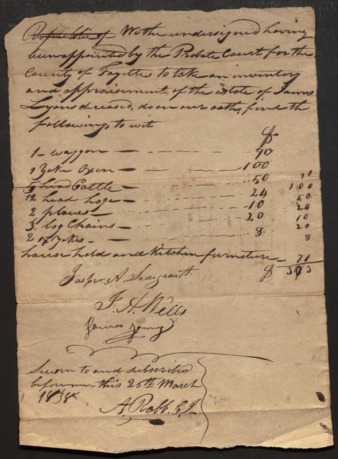 Republic of We the undersigned having
been appointed by the Probate Court for the
County of Fayette to take an inventory
and appraisement of the estate of James
Lyons deceased, do on our oaths, find the
following to wit
$
1 - waggon — 90
Yoke Oxen — 100
5 head Cattle — 50 100
12 head hogs — 24 50
2 plows — 10 24
3 log Chains — 20 10
2 — 8 20
8
house hold and Kitchen furniture — 71
$
Jasper N. Sargeant
J. H. Wells
James Young
Sworn to and subscribed
before me this 26th March
1838
A. Rabb C.J.